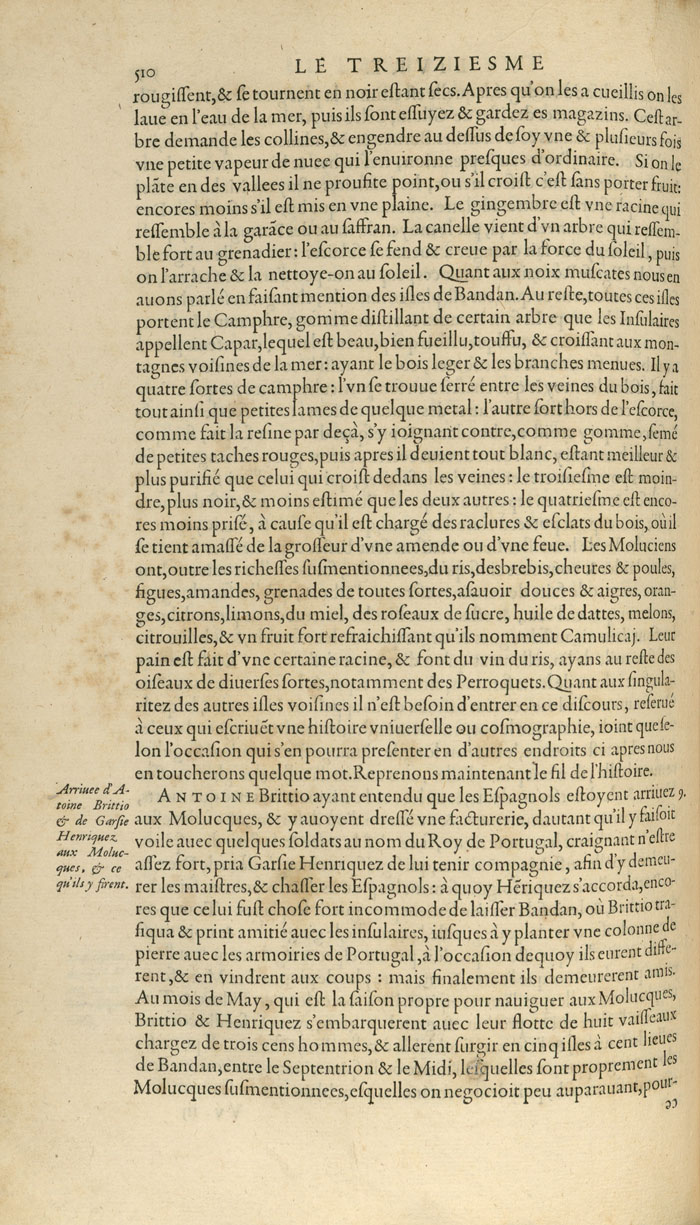 510
LE TREIZIESME
rougiſſent,& ſe tournent en noir eſtant ſecs. Apres qu'on les a cueillis on les
laue en l'eau de la mer, puis ils ſont eſſuyez & gardez es magazins. Ceſt ar-
bre demande les collines,& engendre au deſſus de ſoy vne & pluſieurs fois
vne petite vapeur de nuee qui l'enuironne preſques d'ordinaire. Si on le
plãte en des vallees il ne proufite point,ou s'il croiſt c'eſt ſans porter fruit:
encores moins s'il eſt mis en vne plaine. Le gingembre eſt vne racine qui
reſſemble à la garãce ou au ſaffran. La canelle vient d'vn arbre qui reſſem-
ble fort au grenadier: l'eſcorce ſe fend & creue par la force du ſoleil, puis
on l'arrache & la nettoye-on au ſoleil. Quant aux noix muſcates nous en
auons parlé en faiſant mention des iſles de Bandan. Au reſte,toutes ces iſles
portent le Camphre, gomme diſtillant de certain arbre que les Inſulaires
appellent Capar,lequel eſt beau,bien fueillu,touffu, & croiſſant aux mon-
tagnes voiſines de la mer: ayant le bois leger & les branches menues. Il y a
quatre ſortes de camphre: l'vn ſe trouue ſerré entre les veines du bois, fait
tout ainſi que petites lames de quelque metal: l'autre ſort hors de l'eſcorce,
comme fait la reſine par deçà, s'y ioignant contre,comme gomme,ſemé
de petites taches rouges,puis apres il deuient tout blanc, eſtant meilleur &
plus purifié que celui qui croiſt dedans les veines: le troiſieſme eſt moin-
dre,plus noir,& moins eſtimé que les deux autres: le quatrieſme eſt enco-
res moins priſé, à cauſe qu'il eſt chargé des raclures & eſclats du bois, où il
ſe tient amaſſé de la groſſeur d'vne amende ou d'vne feue. Les Moluciens
ont,outre les richeſſes ſuſmentionnees,du ris,des brebis,cheures & poules,
figues,amandes, grenades de toutes ſortes,aſauoir douces & aigres, oran-
ges,citrons,limons,du miel, des roſeaux de ſucre, huile de dattes, melons,
citrouilles,& vn fruit fort refraichiſſant qu'ils nomment Camulicaj. Leur
pain eſt fait d'vne certaine racine, & font du vin du ris, ayans au reſte des
oiſeaux de diuerſes ſortes,notamment des Perroquets. Quant aux ſingula-
ritez des autres iſles voiſines il n'eſt beſoin d'entrer en ce diſcours, reſerué
à ceux qui eſcriuẽt vne hiſtoire vniuerſelle ou coſmographie, ioint que ſe-
lon l'occaſion qui s'en pourra preſenter en d'autres endroits ci apres nous
en toucherons quelque mot. Reprenons maintenant le fil de l'hiſtoire.
Arriuee d'A-
toine Brittio
& de Garſie
Henriquez
aux Moluc-
ques, & ce
qu'ils y firent.
ANTOINE Brittio ayant entendu que les Eſpagnols eſtoyent arriuez 9.
aux Molucques, & y auoyent dreſſé vne facturerie, dautant qu'il y faiſoit
voile auec quelques ſoldats au nom du Roy de Portugal, craignant n'eſtre
aſſez fort, pria Garſie Henriquez de lui tenir compagnie, afin d'y demeu-
rer les maiſtres,& chaſſer les Eſpagnols: à quoy Hẽriquez s'accorda,enco-
res que ce lui fuſt choſe fort incommode de laiſſer Bandan, où Brittio tra-
fiqua & print amitié auec les inſulaires, iuſques à y planter vne colonne de
pierre auec les armoiries de Portugal,à l'occaſion dequoy ils eurent diffe-
rent,& en vindrent aux coups: mais finalement ils demeurerent amis.
Au mois de May, qui eſt la ſaiſon propre pour nauiguer aux Molucques,
Brittio & Henriquez s'embarquerent auec leur flotte de huit vaiſſeaux
chargez de trois cens hommes,& allerent ſurgir en cinq iſles à cent lieues
de Bandan,entre le Septentrion & le Midi, leſquelles ſont proprement les
Molucques ſuſmentionnees,eſquelles on negocioit peu auparauant,pour-